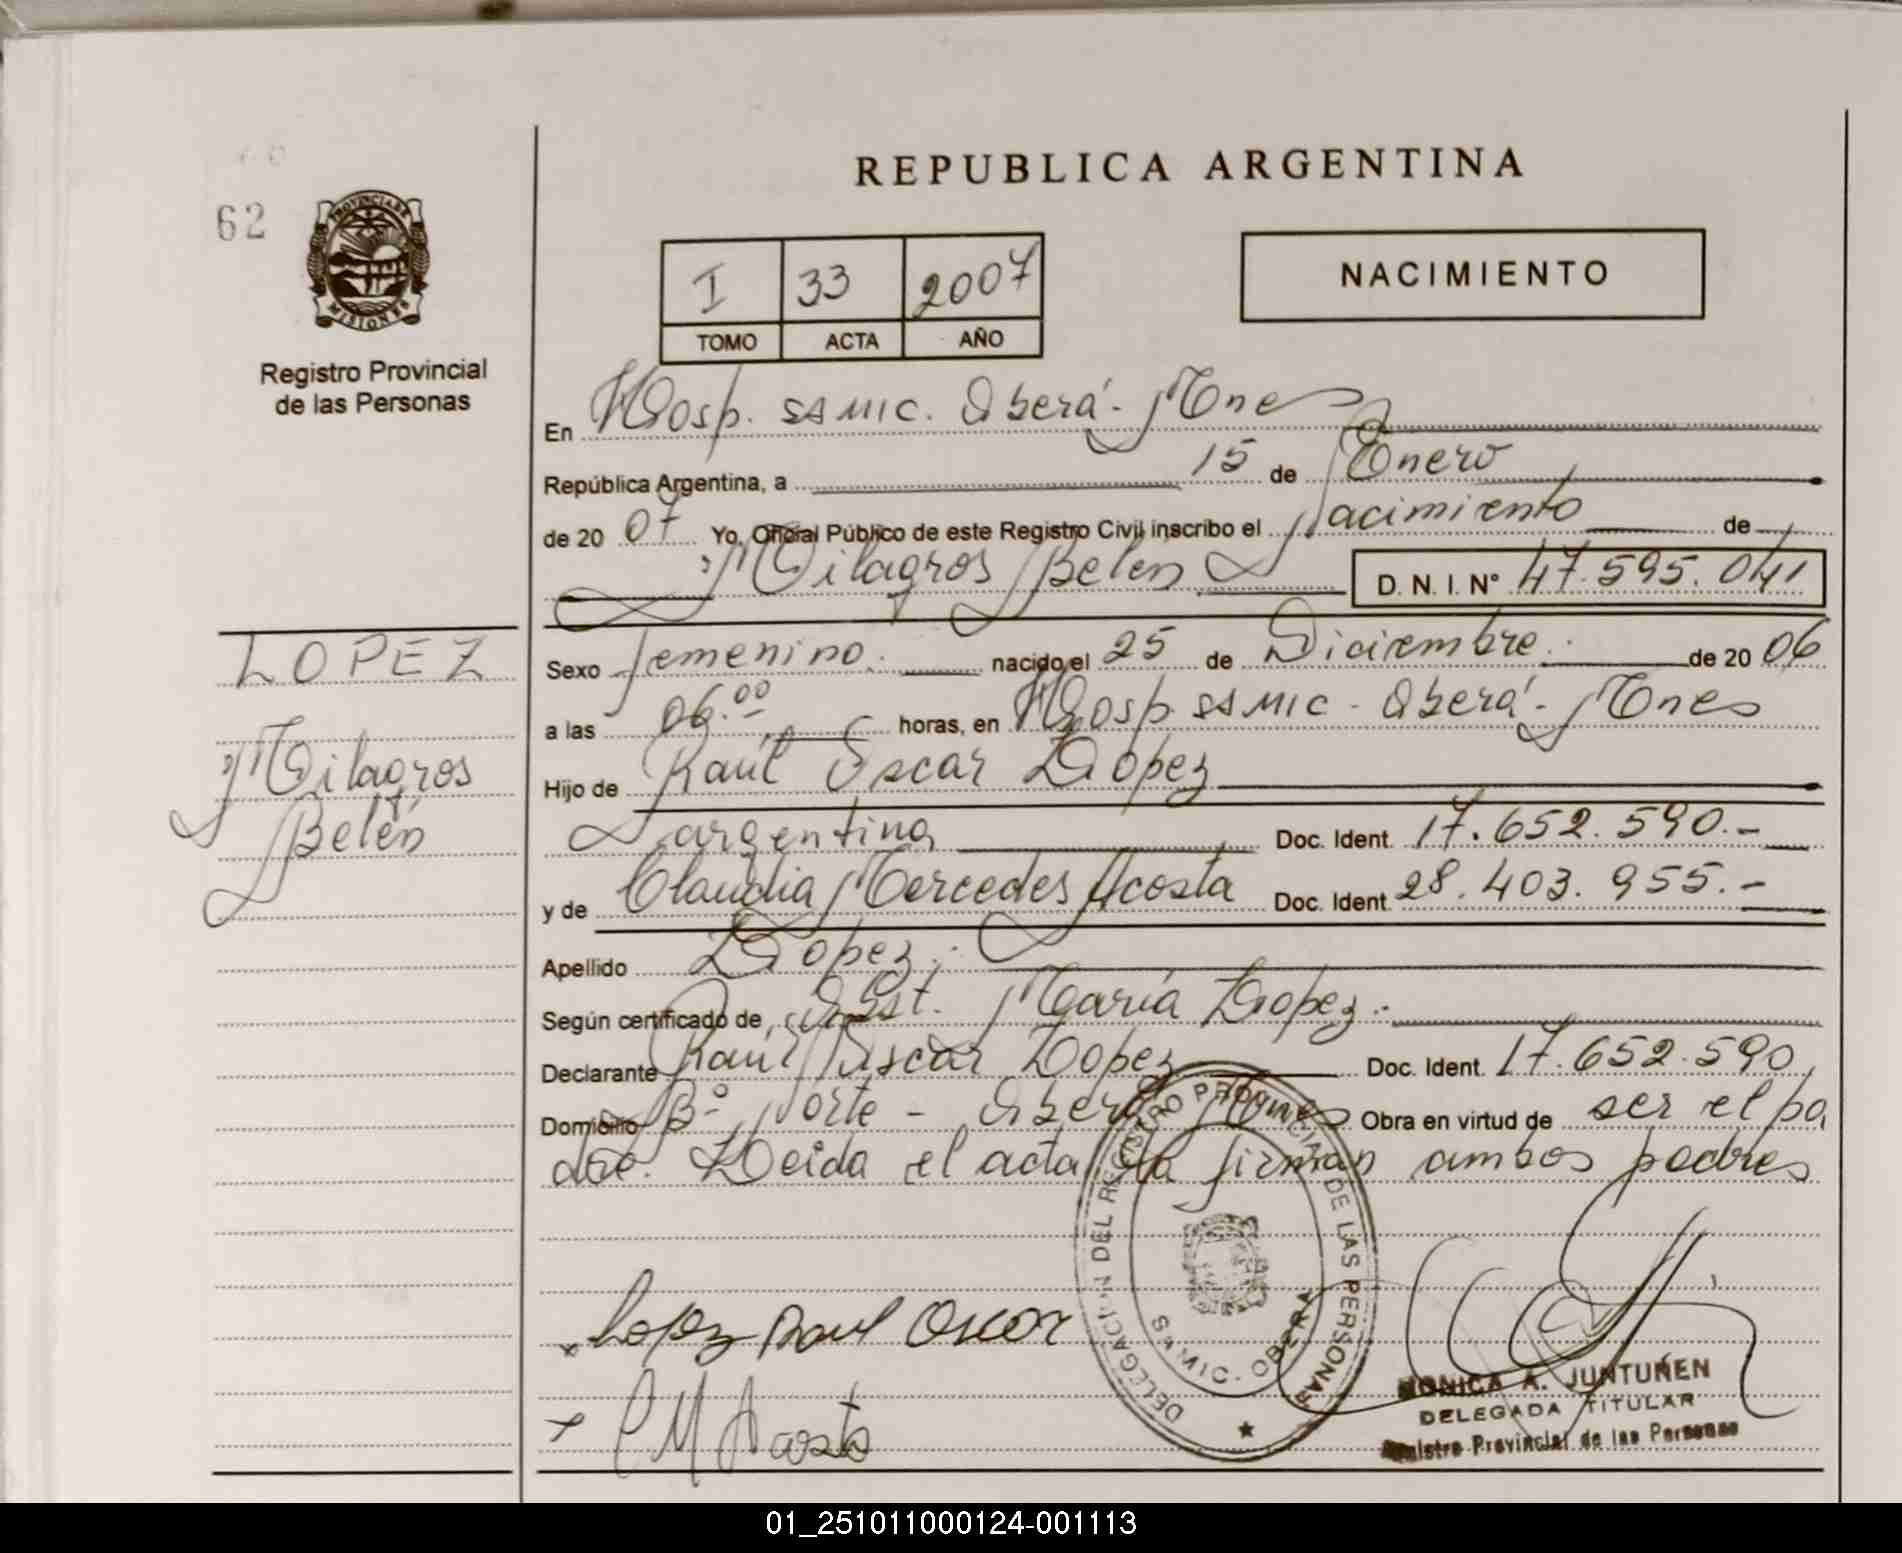 62
PROVINCIA DE
MISIONES
Registro Provincial
de las Personas
LOPEZ
Milagros
Belén
REPUBLICA ARGENTINA
I 33 2007
TOMO ACTA AÑO
NACIMIENTO
En Hosp. SAMIC. Oberá - Mnes
República Argentina, a 15 de Enero
de 20 07 Yo, Oficial Público de este Registro Civil inscribo el Nacimiento de
Milagros Belén D. N. I. Nº 47.595.041
Sexo femenino. nacido el 25 de Diciembre. de 20 06
a las 06.00 horas, en Hosp. SAMIC - Oberá - Mnes
Hijo de Raúl Oscar Lopez
argentina Doc. Ident. 17.652.590.-
y de Claudia Mercedes Acosta Doc. Ident. 28.403.955.-
Apellido Lopez.
Según certificado de Obst. María Lopez.
Declarante Raúl Oscar Lopez Doc. Ident. 17.652.590
Domicilio Bº Norte - Oberá Mnes Obra en virtud de ser el pa
dre. Leida el acta la firman ambos padres
x Lopez Raul Oscar
x C M Acosta
DELEGACION DEL REGISTRO PROVINCIAL DE LAS PERSONAS
SAMIC - OBERA
MONICA A. JUNTUNEN
DELEGADA TITULAR
Registro Provincial de las Personas
01_251011000124-001113